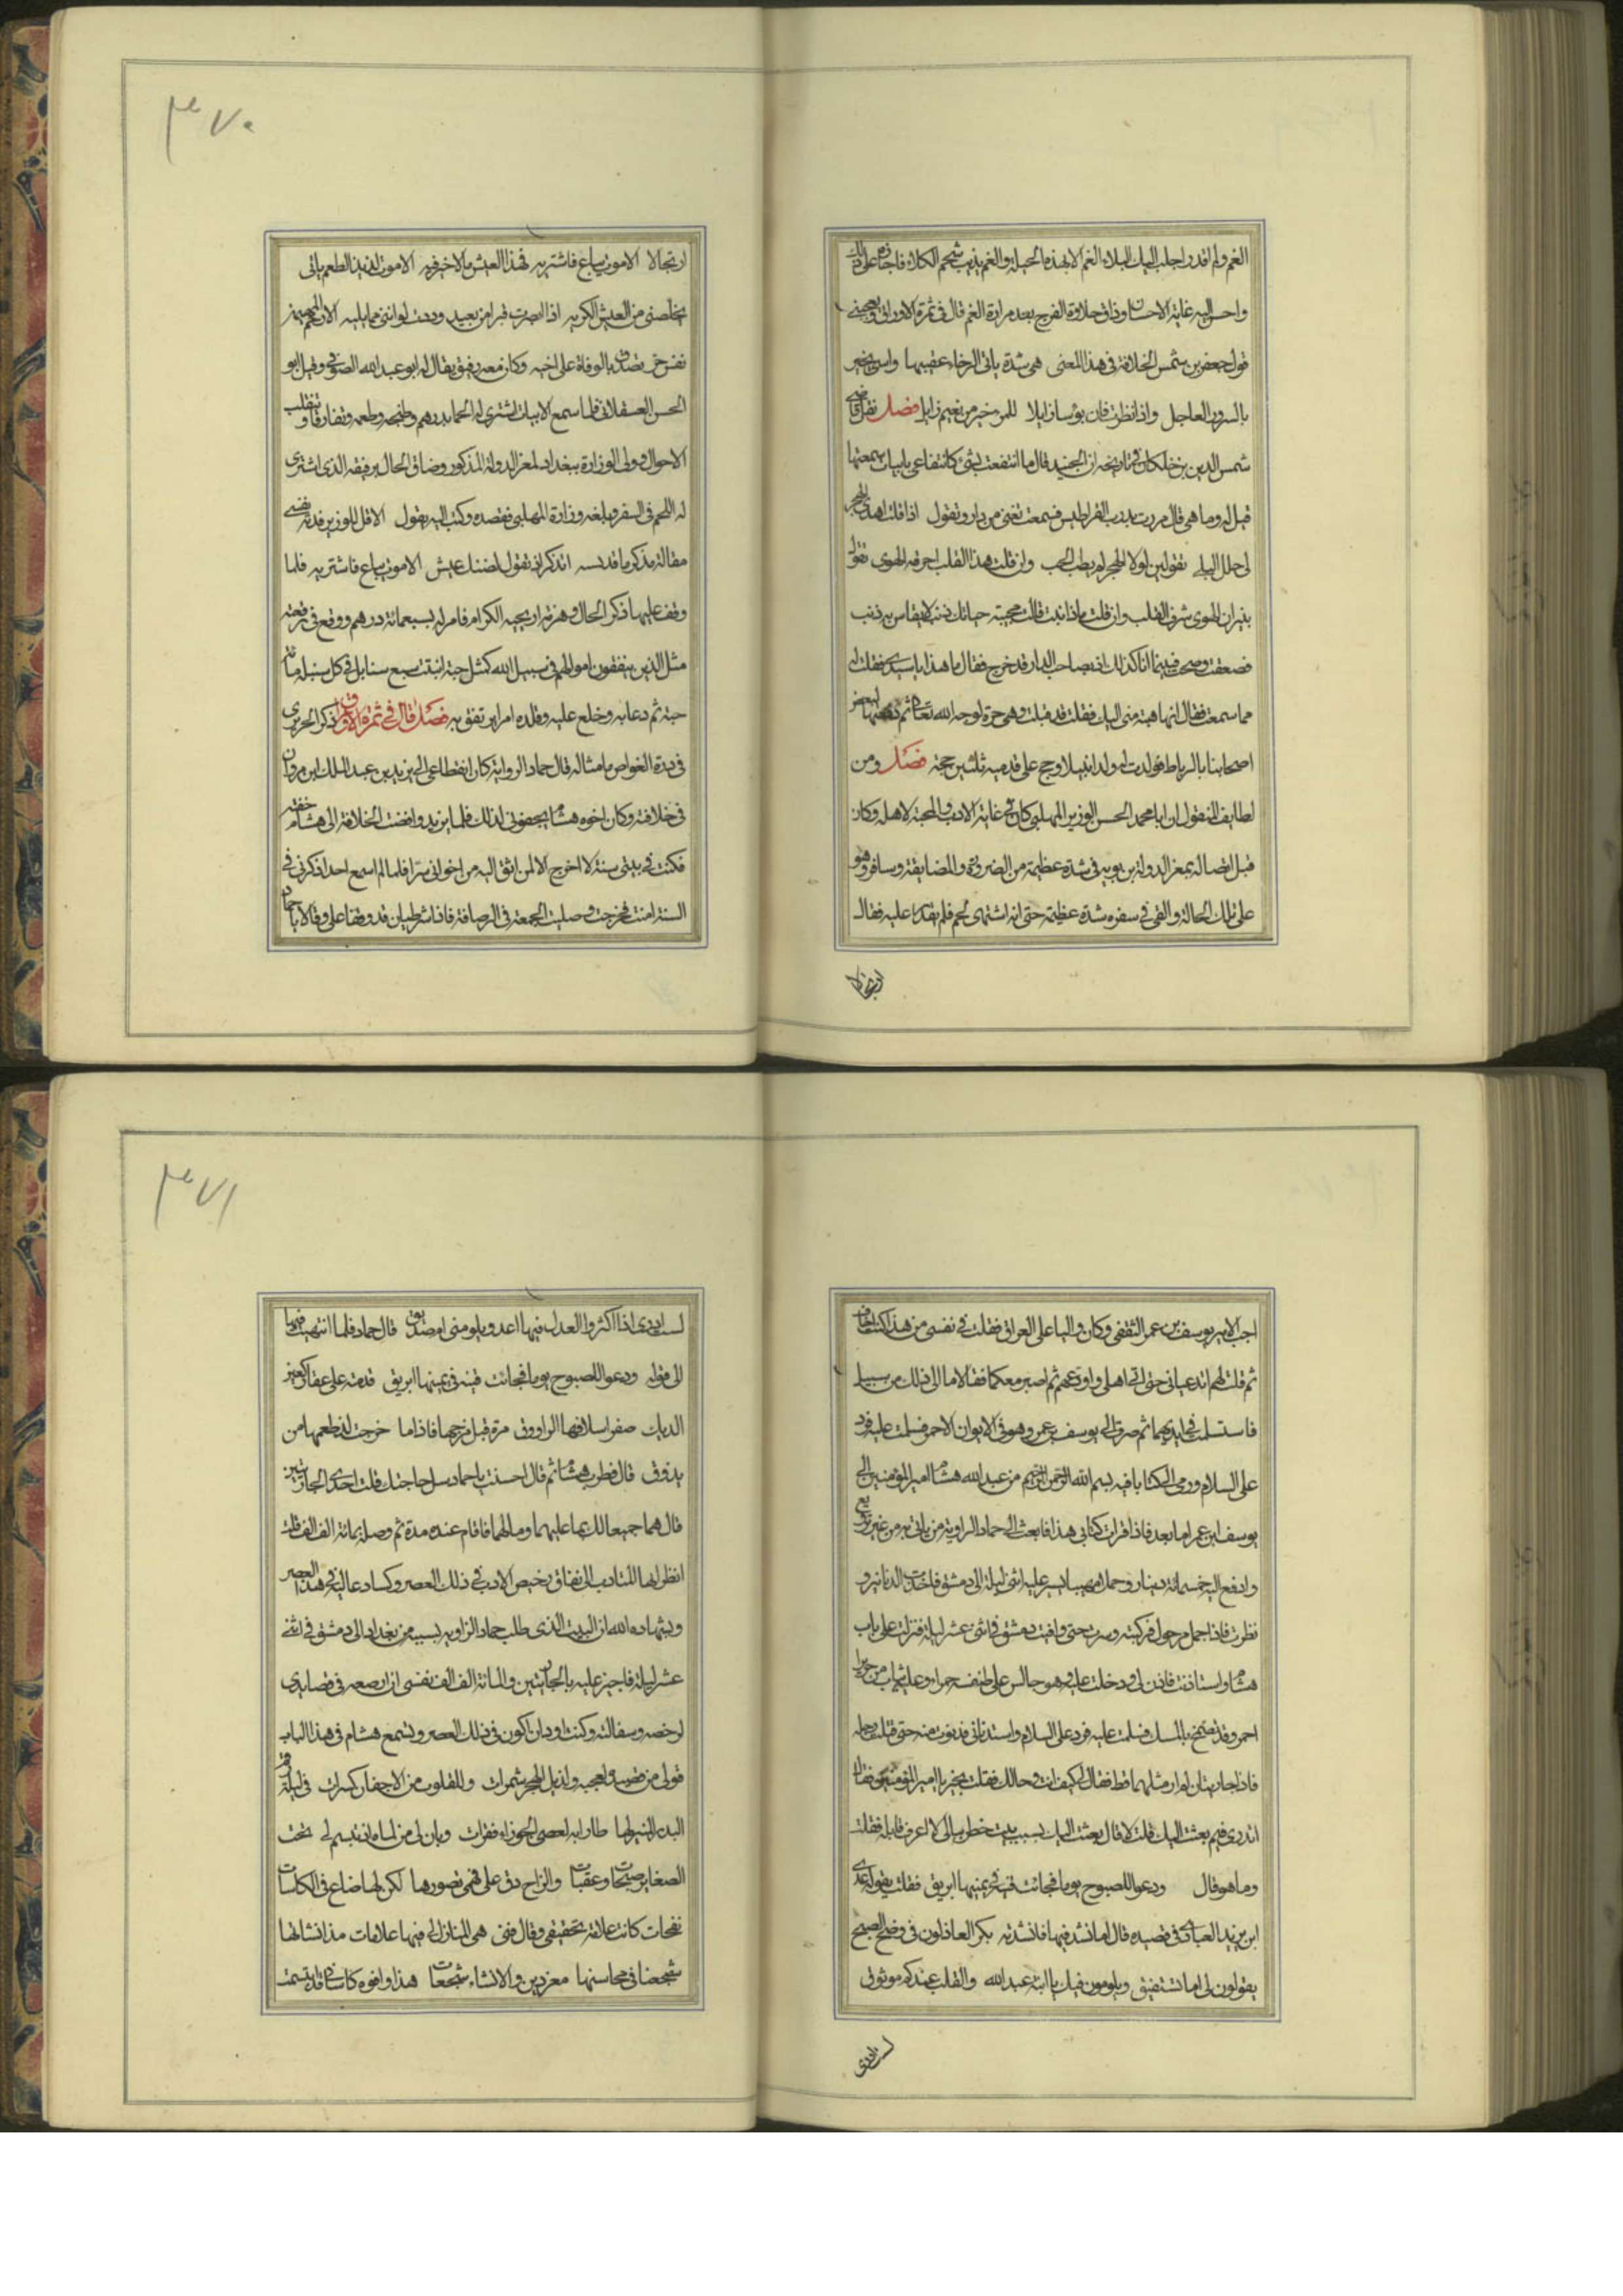 ۳۷۰
الغم ولم اقدر اجلب اليك البلاد الغم الا بهذه الحيلة والغم يذيب شحم الكلا فاجازه على ذلك
واحسن اليه غاية الاحسان وذاق حلاوة الفرج بعد مرارة الغم قال فى ثمرة الاوراق ويعجبنى
قول جعفر بن شمس الخلافة فى هذا المعنى هى شدة ياتى الرخاء عقيبها واسى يبخير
بالسرور العاجل واذا نظرت فان بؤسا زايلا للمرء خير من نعيم زايل فصل نقل قاضى
شمس الدين بن خلكان فى تاريخه ان الجنيد قال ما انتفعت بشئ كانتفاعى بابيات سمعتها
قيل له وما هى قال مررت بدرب القراطيس فسمعت تغنى من دار وتقول اذا قلت اهدى الهجر
لى حلل البلى تقولين لولا الهجر لم يطب الحب وان قلت هذا القلب احرقه الهوى تقولى
بنيران الهوى شرف القلب وان قلت ماذا ذنبت قالت مجيبة حياتك ذنب لا يقاس به ذنب
فصعقت وصحت فبينما انا كذلك اذ بصاحب الدار قد خرج فقال ما هذا يا سيدى فقلت له
مما سمعت فقال انها هبة منى اليك فقلت قد قبلت وهى حرة لوجه الله تعالى ثم دفعتها لبعض
اصحابنا بالرباط فولدت له ولدا نبيلا وحج على قدميه ثلثين حجة فصل ومن
لطايف المنقول ان ابا محمد الحسن الوزير المهلبى كان فى غاية الادب والمحبة لاهله وكان
قبل اتصاله بمعز الدولة بن بويه فى شدة عظيمة من الضرورة والمضايقة وسافر وهو
على تلك الحالة والقى فى سفره شدة عظيمة حتى انه اشتهى لحم فلم يقدر عليه فقال
ارتجالا
ارتجالا الا موت يباع فاشتريه فهذا العيش ما لا خير فيه الا موت لذيذ الطعم ياتى
يخلصنى من العيش الكريه اذا ابصرت قبرا من بعيد وددت لو اننى مما يليه الا رحم المهيمن
نفس حر تصدق بالوفاة على اخيه وكان معه رفيق يقال له ابو عبد الله الصوفى وقيل ابو
الحسن العسقلانى فلما سمع الابيات اشترى له لحما بدرهم وطبخه وطعمه وتفارقا وتنقلب
الاحوال وولى الوزارة ببغداد لمعز الدولة المذكور وضاق الحال برفيقه الذى اشترى
له اللحم فى السفر وبلغه وزارة المهلبى فقصده وكتب اليه يقول الا قل للوزير فدته نفسى
مقالة مذكر ما قد نسيه اتذكر اذ تقول لضنك عيش الا موت يباع فاشتريه فلما
وقف عليها ذكر الحال وهزته اريحية الكرام فامر له بسبعمائة درهم ووقع فى رقعته
مثل الذين ينفقون اموالهم فى سبيل الله كمثل حبة انبتت سبع سنابل فى كل سنبلة مائة
حبة ثم دعا به وخلع عليه وقلده امرا يرتفق به فصل قال فى ثمرة الاوراق ذكر الحريرى
فى درة الغواص ما مثاله قال حماد الروايه كان انقطاعى الى يزيد بن عبد الملك ابن مروان
فى خلافته وكان اخوه هشام يجفونى لذلك فلما يزيد وافضت الخلافة الى هشام خفته
فمكثت فى بيتى سنة لا اخرج الا لمن اثق اليه من اخوانى سرا فلما لم اسمع احدا ذكرنى فى
السنة امنت فخرجت وصليت الجمعة فى الرصافة فاذا شرطيان قد وقفا على وقالا يا حماد
۳۷۱
اجب الامير يوسف بن عمر الثقفى وكان واليا على العراق فقلت فى نفسى من هذا كنت اخاف
ثم قلت لهم اتدعيانى حتى اتى اهلى واودعهم ثم اصير معكما فقالا ما الى ذلك من سبيل
فاستسلمت فى ايديهما ثم صرت الى يوسف بن عمر وهو فى الايوان الاحمر فسلمت عليه فرد
على السلام ورمى الى كتابا فيه بسم الله الرحمن الرحيم من عبد الله هشام امير المؤمنين الى
يوسف ابن عمر اما بعد فاذا قرات كتابى هذا فابعث الى حماد الراوية من ياتى به من غير ترويع
وادفع اليه خمسمائة دينار وجملا مهريا يسير عليه اثنى ليلة الى دمشق فاخذت الدنانير و
نظرت فاذا جمل مرحول فركبته وسرت حتى وافيت دمشق فى اثنى عشر ليلة فنزلت على باب
هشام واستاذنت فاذن لى ودخلت عليه وهو جالس على طنفسه حمراء وعليه ثياب من حرير
احمر وقد تضمخ بالمسك فسلمت عليه فرد على السلام واستدنانى فدنوت منه حتى قبلت رجله
فاذا جاريتان لم ار مثلهما قط فقال كيف انت وحالك فقلت بخير يا امير المؤمنين فقال
اتدرى فيم بعثت اليك قلت لا قال بعثت اليك بسبب بيت خطر ببالى لا اعرف قايله فقلت
وما هو قال ودعوا للصبوح يوما فجائت قينة فى يمينها ابريق فقلت يقوله عدى
ابن يزيد العبادى فى قصيدة قال امانشد فيها فانشدته بكر العاذلون فى وضح الصبح
يقولون لى اما تستفيق ويلومون فيك يا ابنة عبد الله والقلب عندكم موثوق
لست ادرى
لست ادرى اذا اكثروا العدل فيها اعدو يلومنى ام صديق قال حماد فلما انتهيت فيها
الى قوله ودعوا للصبوح يوما فجائت قينة فى يمينها ابريق قدمته على عقار كعين
الديك صفر اسلافها الراووق مرة قبل مزجها فاذا ما خرجت لذ طعمها من
يذوق قال فطرب هشام ثم قال احسنت يا حماد سل حاجتك قلت احدى الجاريتين
قال هما جميعا لك بما عليهما وما لهما فاقام عنده مدة ثم وصله بمائة الف الف قلت
انظر ايها المتادب الى نفاق رخيص الادب فى ذلك العصر وكساد غاليه فى هذا العصر
وبشهادة الله ان البيت الذى طلب حماد الراويه بسببه من بغداد الى دمشق فى اثنى
عشر ليلة فاجيز عليه بالجاريتين والمائة الف الف نفسى ان ارصعه فى قصايدى
لرخصه وسفالته وكنت اود ان اكون فى ذلك العصر ويسمع هشام فى هذا الباب
البدر المنير لها طار ابه لعصى الجوزاء فقرات وبان لى من لماه اذ تبسم لى تحت
نفحات كانت علاقة تحقيقى وقال فتى هى المنازل لى فيها علاقات مذ انشالها
شحصنا فى محاسنها مغردين والانشاء شجعات هذا وافوه كاساتى قد ابتسمت